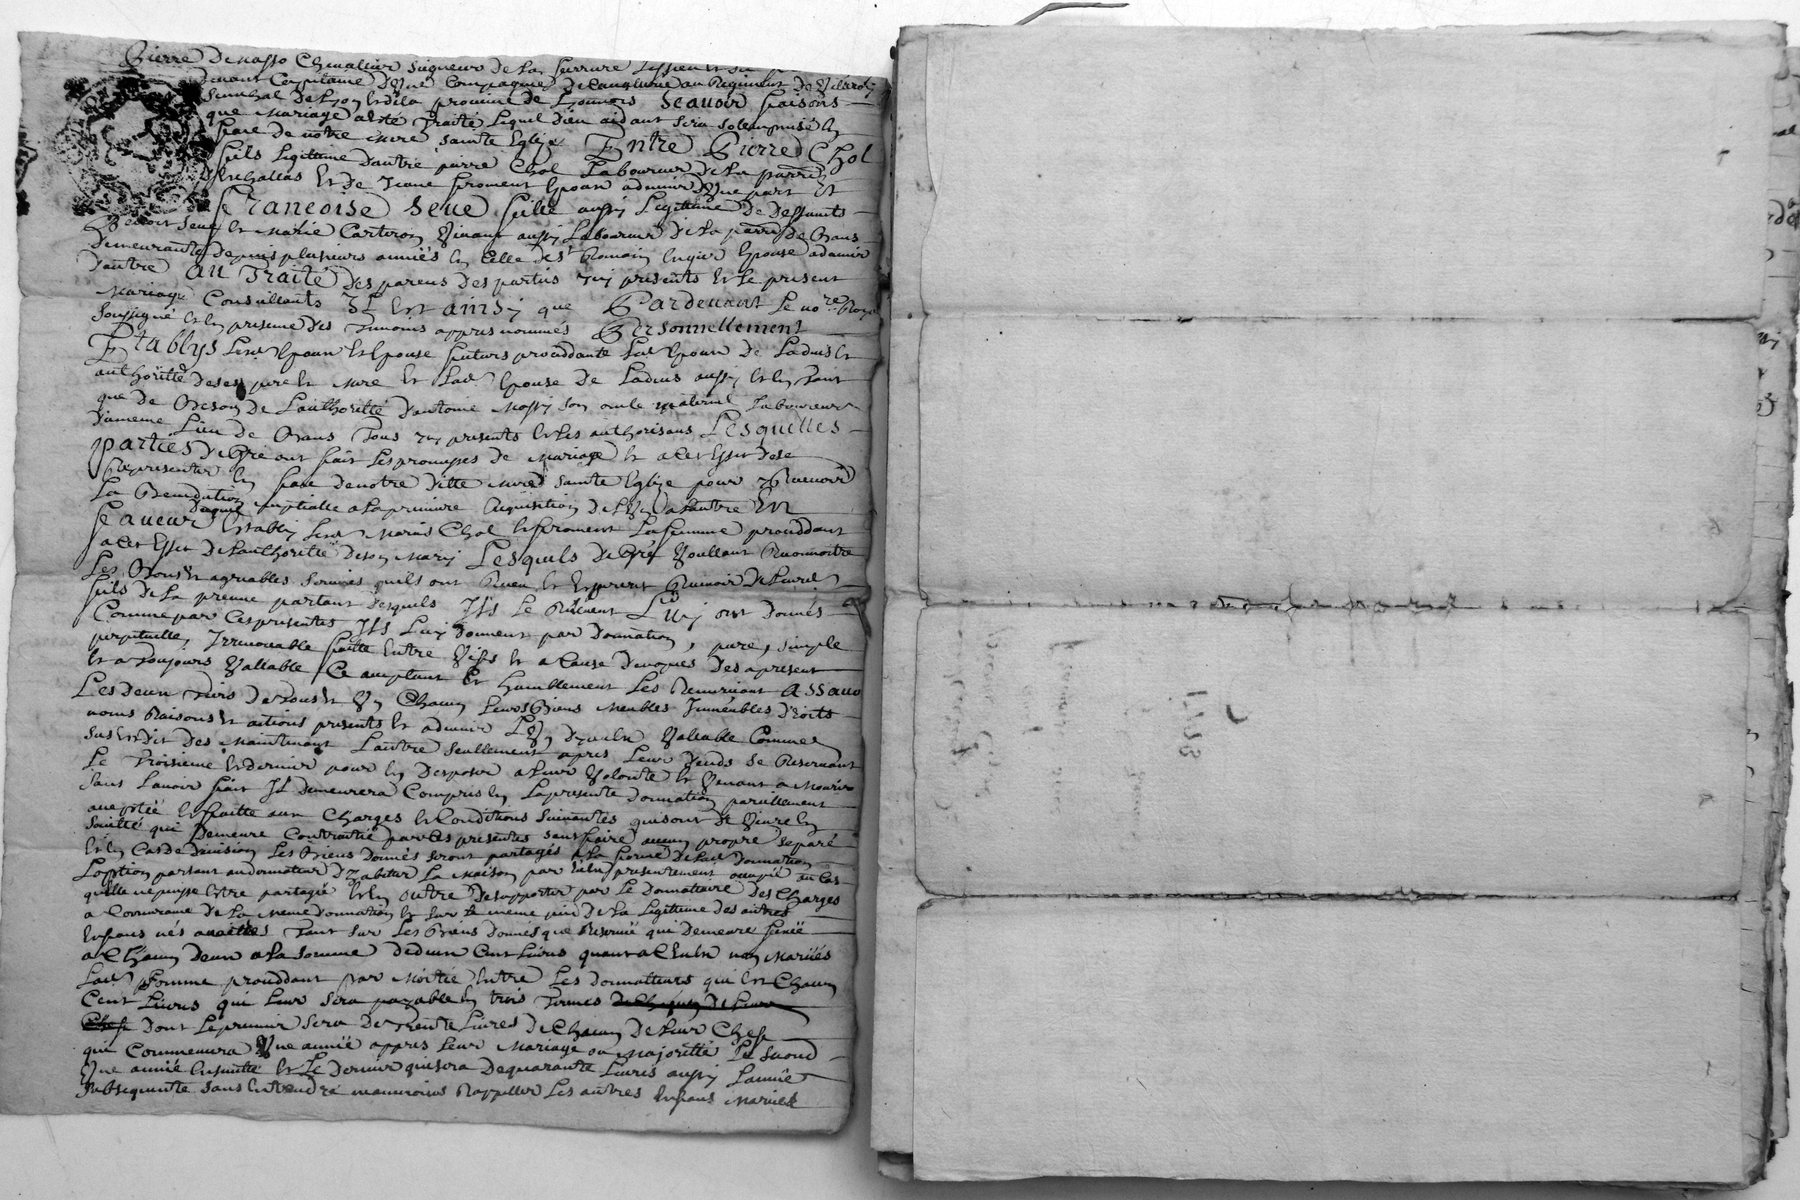 Pierre De masso Chevallier Seigneur de La ferriere Lissieu et
devant Capitaine d'Une Compagnie De Cavallerie au Regiment De Villeroy
Senechal De Lyon et de la province de Lyonnois Scavoir faisons
que Mariage a eté Traité Lequel Dieu aidant sera solempnisé En
face de notre mere sainte Eglize Entre Pierre Chol
fils Legitime d'autre pierre Chol Laboureur De La parroisse
et de Jeane froment Epoux advenir D'Une part Et
francoise Seve fille aussy Legitime De Deffunts
Benoit Seve et Marie Carteron Vivant aussy Laboureur De La parre De
Demeurante Depuis plusieurs années En Celle de St Romain En gier Epouse advenir
D'autre Au Traité Des parens Des parties icy presents et Le present
Mariage Consillants Il Est ainsy que Pardevant Le nore Royal
Soussigné et En presence Des Temoins appres nommés Personnellement
Etablys Lesd Epoux et Epouse futurs proceddante Led Epoux De Ladvis et
authoritté De ses pere et Mere et Lad Epouse De Ladvis aussy et En Tant
que De Besoin De Lauthoritté D'antoine Mossy son oncle maternel Laboureur
Dumeme Lieu De Tous icy presents et Les authorisans Lesquelles
parties De Gré ont fait Les promesses De Mariage et a Cet Effet De se
Representer En face De notre Ditte Mere Sainte Eglize pour y Recevoir
La Benediction nuptialle a La premiere Requisition De L'Un a Lautre Et
En faveur Duquel Establys Lesd Mariés Chol et froment La femme proceddant
a Cet Effet De Lauthoritté De son Mary Lesquels De Gré Voullant Reconnoitre
Les Bons et agreables services quils ont Receu et Esperent Recevoir De Leurd
fils De La preuve partant Desquels Ils Le Relevent Luy ont Donnés
Comme par Ces presentes Ils Luy Donnent par Donnation, pure, simple
perpetuelle, Irrevocable faitte Entre Vifs et a Cause De nopces Des apresent
et a Toujours Vallable Ce acceptant Et humblement Les Remerciant Assavoir
Les Deux Tiers De Tous et Un Chacun Leurs Biens Meubles Immeubles Droits
noms Raisons et actions presents et advenir L'Un D'Iceulx Vallable Comme
Susest Dit Des Maintenant Lautre seullement apres Leur Deceds Se Reservant
Le Troisieme et Dernier pour En Disposer a Leur Volonté et Venant a Mourir
Sans Lavoir fait Il Demeurera Compris En La presente Donnation pareillement
acceptée et faitte aux Charges et Conditions suivantes qui sont De Vivre En
societté qui Demeure Contractée par Ces presentes sans faire aucun propre separé
Et En Cas De Division Les Biens Donnés seront partagés a La forme De Lad Donnation
Loption partant au donnateur D'y habiter La Maison par Eux presentement occupée au Cas
qu'elle ne puisse Estre partagée Et En outre De supporter par Le Donnataire Des Charges
a Concurance De La Meme Donnation Et sur Le meme pied De La Legitime Des autres
Enfans nés Tant sur Les Biens Donnés que Reservé qui Demeure fixée
a Chacun Deux a La somme De Deux Cent Livres quant a Ceulx non Mariés
Lad somme proceddant par Moitié Entre Les Donnatteurs qui Est Chacun
Cent Livres qui Leur sera payable En trois Termes De Chacun De Leur
Chef Dont Le premier sera De Trente Livres De Chacun De Leur Chef
qui Commencera Une année appres Leur Mariage ou Majoritté Le second
Une année Ensuitte et Le Dernier qui sera De quarante Livres aussy Lannée
Subsequente Sans Entendre neanmoins Rappeller Les autres Enfans Mariés
1728